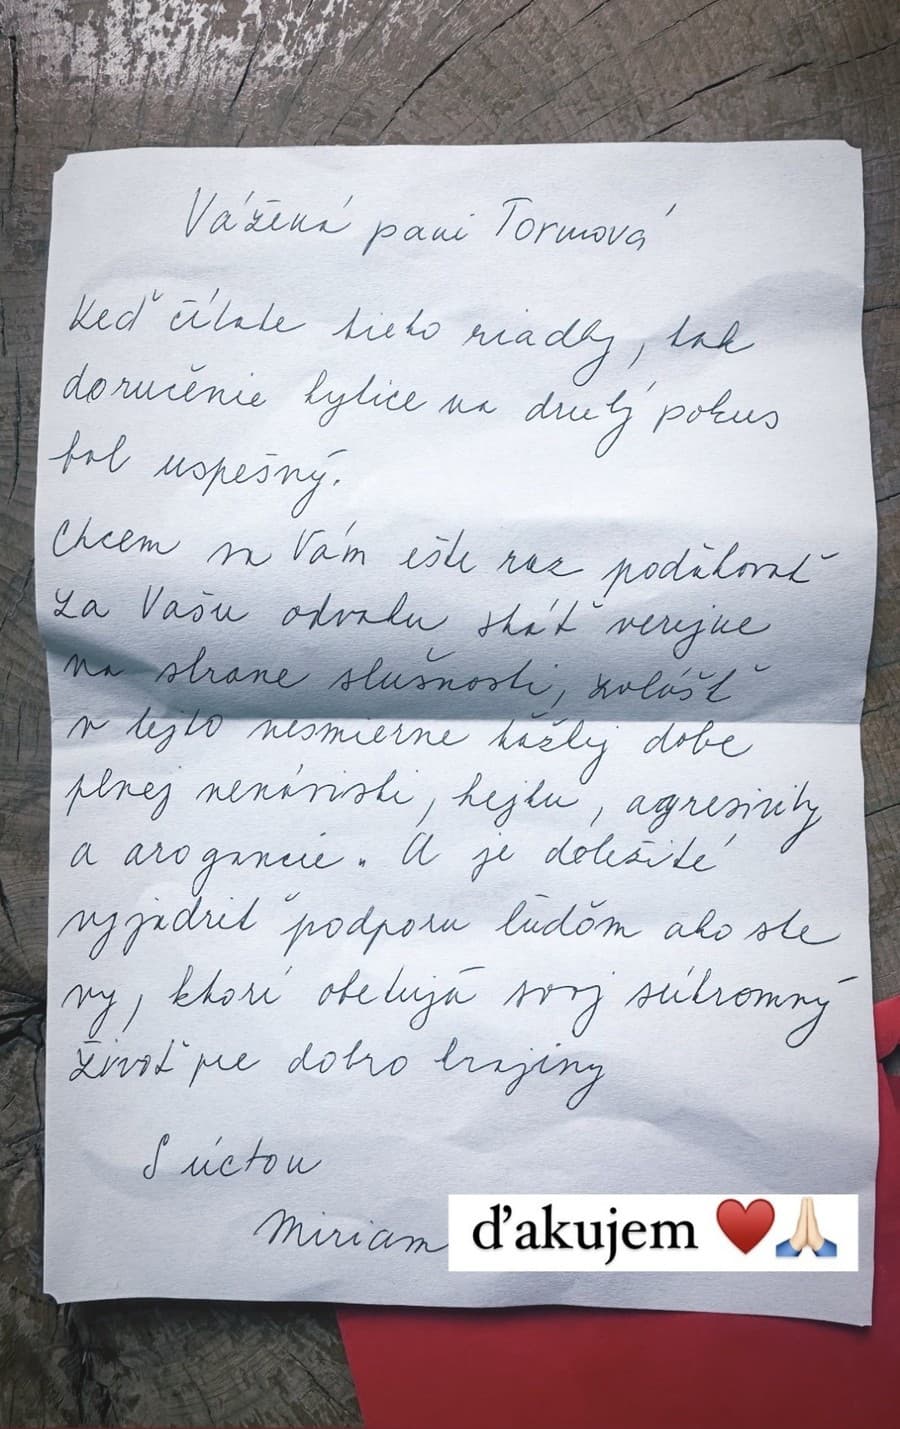 Vážená pani Tormová
Keď čítate tieto riadky, tak
doručenie kytice na druhý pokus
bol uspešný.
Chcem sa Vám ešte raz poďakovať
za Vašu odvahu stáť verejne
na strane slušnosti, zvlášť
v tejto nesmierne ťažkej dobe
plnej nenávisti, hejtu, agresivity
a arogancie. A je doležité
vyjadriť podporu ľuďom ako ste
vy, ktorí obetujú svoj súkromný
život pre dobro krajiny
S úctou
Miriam
ďakujem ❤️🙏🏻